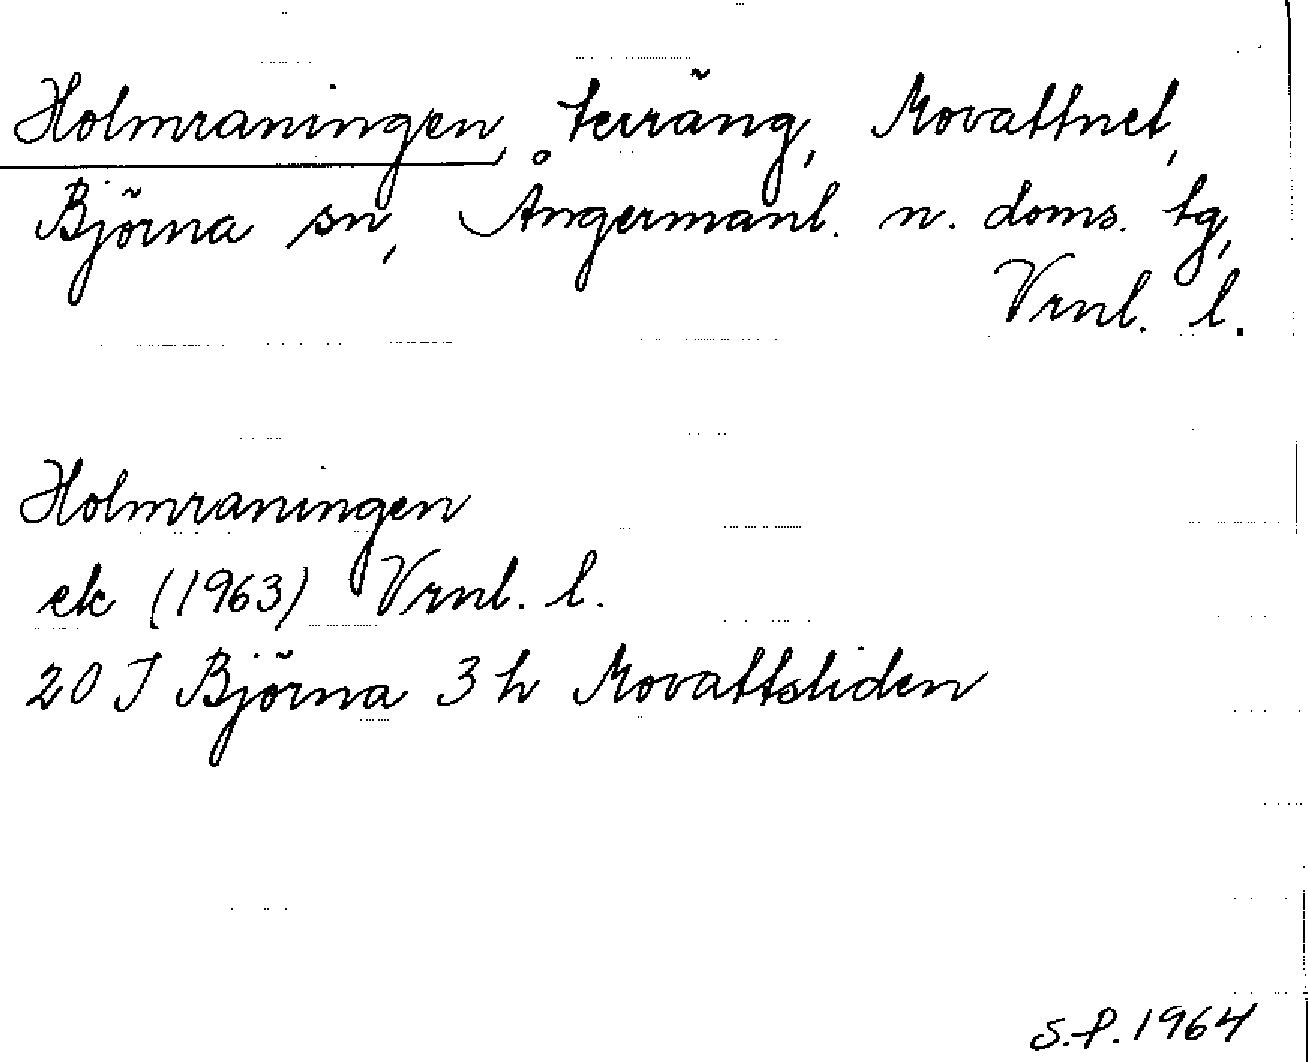 Holmraningen, terräng, Movattnet,
Björna sn, Ångermanl. n. doms. tg,
Vrnl. l.
Holmraningen
ek (1963) Vrnl. l.
20 J Björna 3 h Movattsliden
S.P. 1964